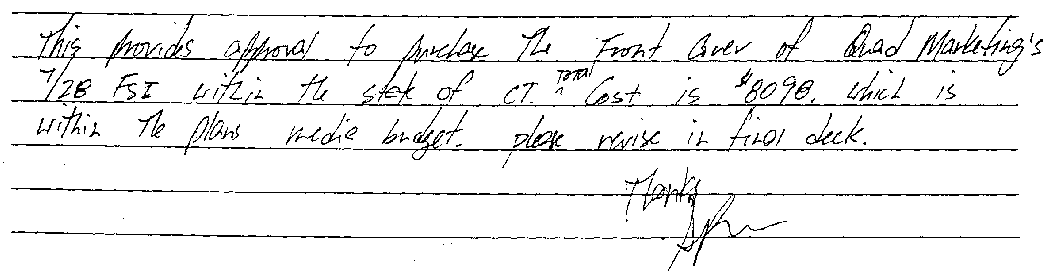 This provides approval to purchase the Front Cover of Quad Marketing's
7/28 FSI within the state of CT. Total Cost is $8098. which is
within the plans media budget. please revise in final deck.
Thanks